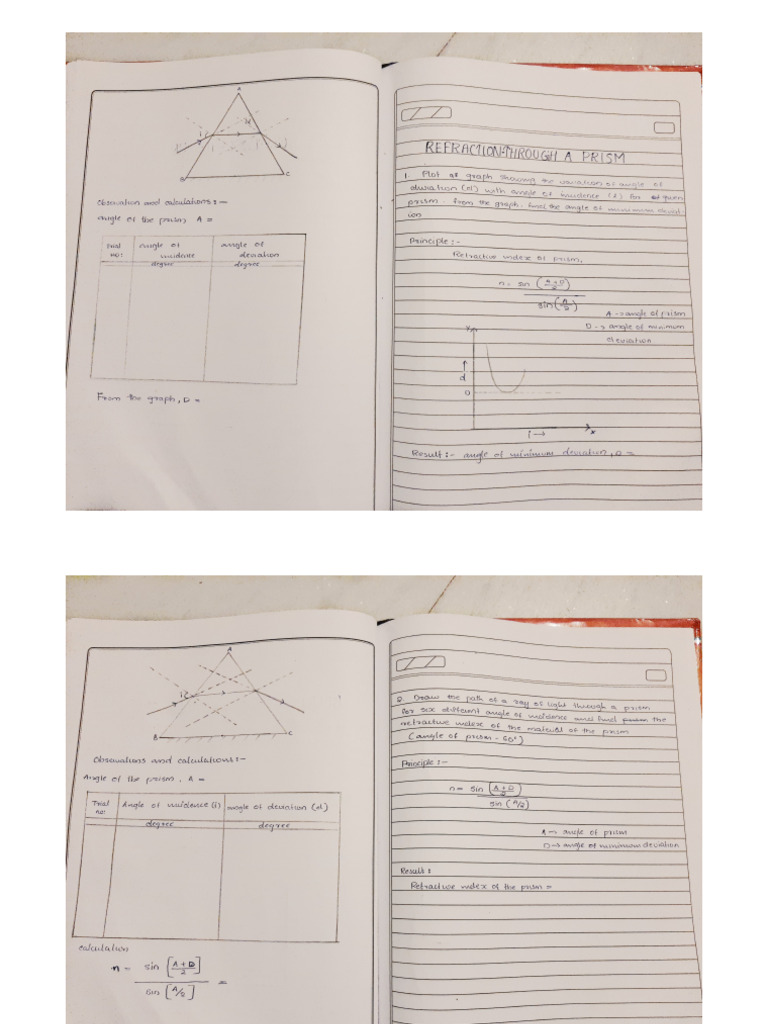 A
B
C
Observation and calculations:-
angle of the prism, A =
Trial no:
angle of incidence
degree
angle of deviation
degree
From the graph, D =
REFRACTION THROUGH A PRISM
1. Plot a graph showing the variation of angle of
deviation (d) with angle of incidence (i) for given
prism. From the graph find the angle of minimum devi
ion
Principle:-
Refractive index of prism,
n = sin (A+D/2)
sin (A/2)
A → angle of prism
D → angle of minimum
deviation
y
↑
d
D
i →
x
Result:- angle of minimum deviation, D =
A
B
C
Obsavations and calculations:-
Angle of the prism, A =
Trial no:
Angle of incidence (i)
degree
angle of deviation (d)
degree
calculation
n = sin [A+D/2]
sin [A/2] =
Q. Draw the path of a ray of light through a prism
for six different angle of incidence and find the
refractive index of the material of the prism
(angle of prism - 60°)
Principle:-
n = sin [A+D/2]
sin (A/2)
A → angle of prism
D → angle of minimum deviation
Result:
Refractive index of the prism =